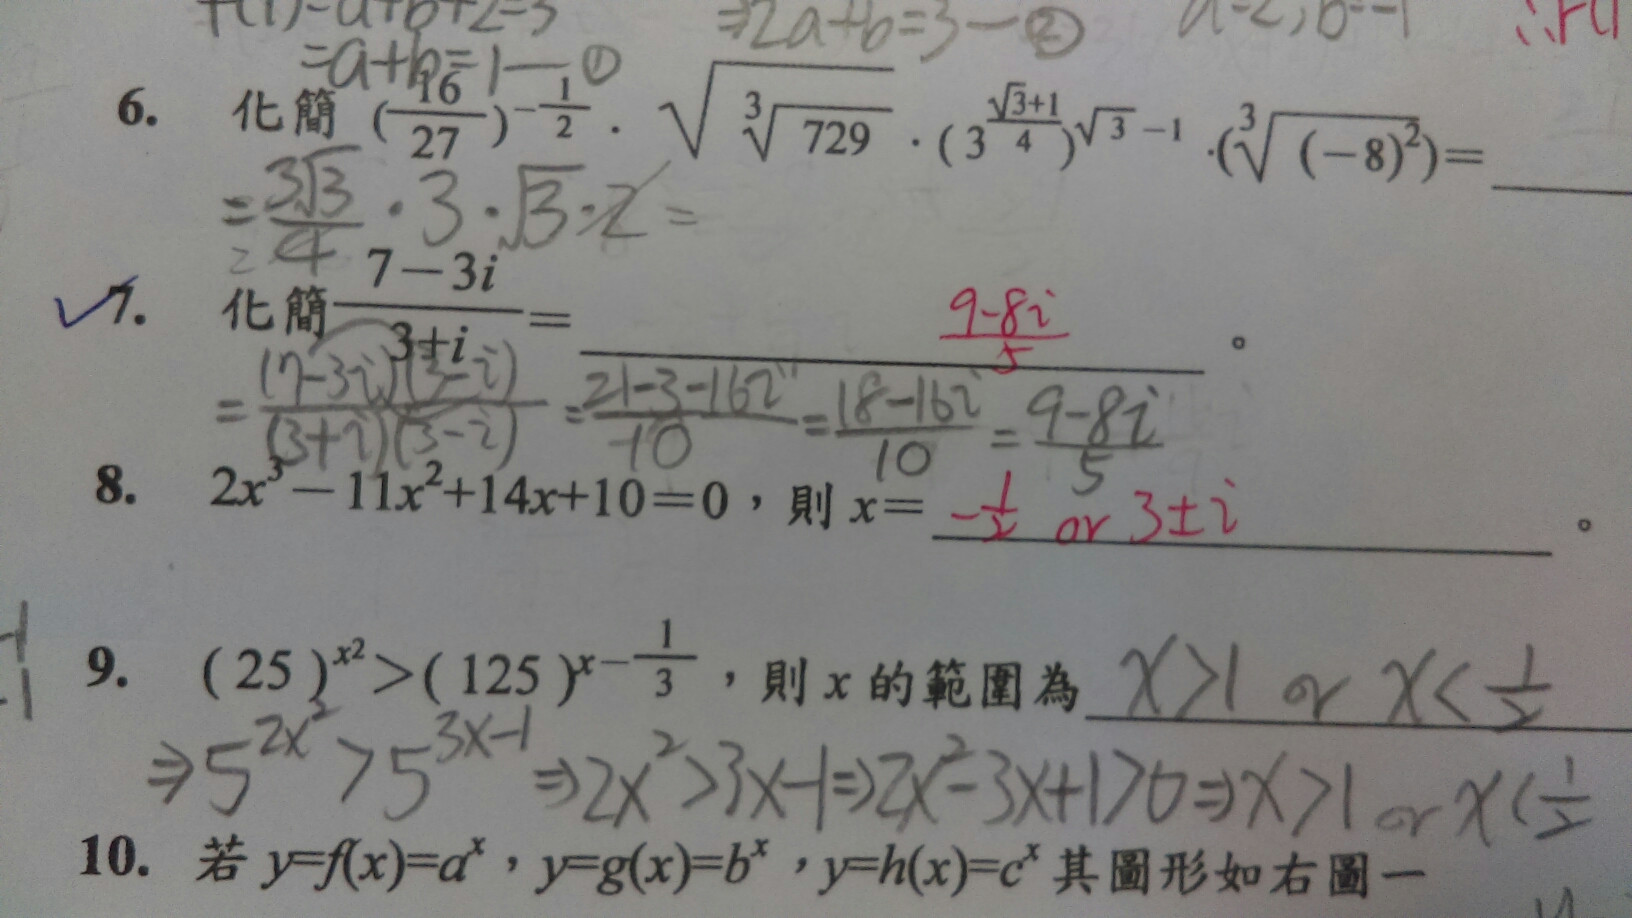 f(1)=a+b+2=3 ⇒2a+b=3—② a=2,b=-1
=a+b=1—①
6. 化簡 (16/27)^(-1/2) · √(∛729) · (3^((√3+1)/4))^(√3-1) · (∛((-8)²))=
= 3√3/4 · 3 · √3 · 2 =
7. 化簡 (7-3i)/(3+i) = (9-8i)/5 。
= (7-3i)(3-i)/(3+i)(3-i) = (21-3-16i)/10 = (18-16i)/10 = (9-8i)/5
8. 2x³-11x²+14x+10=0,則 x= -1/2 or 3±i 。
9. (25)^x2>(125)^(x-1/3),則 x 的範圍為 x>1 or x<1/2
⇒5^(2x²)>5^(3x-1)⇒2x²>3x-1⇒2x²-3x+1>0⇒x>1 or x<1/2
10. 若 y=f(x)=aˣ,y=g(x)=bˣ,y=h(x)=cˣ 其圖形如右圖一